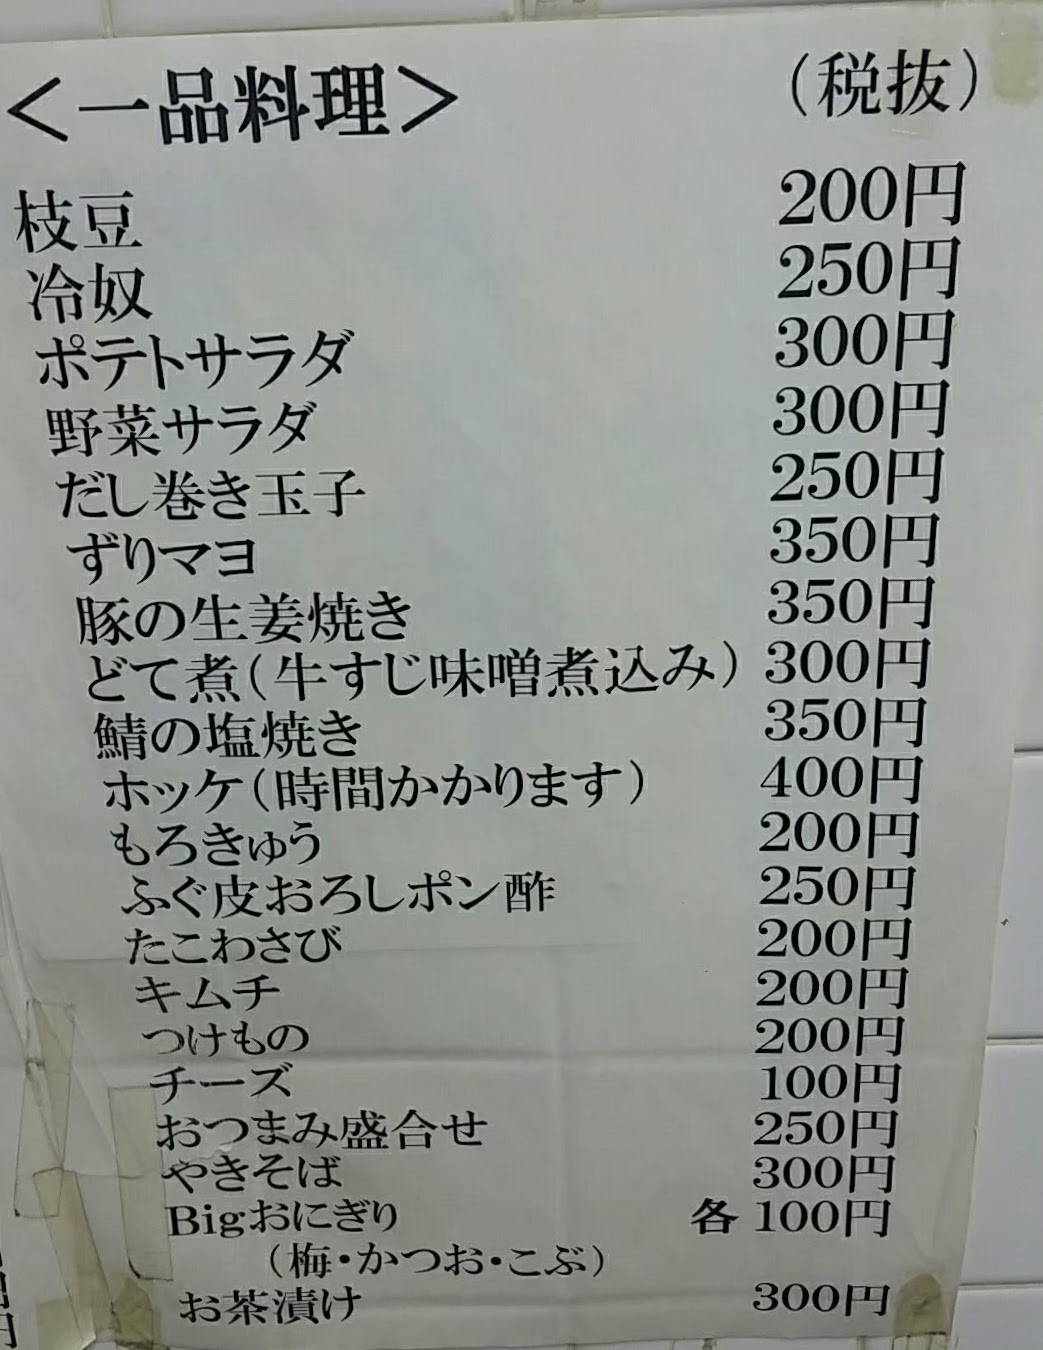 ＜一品料理＞ （税抜）
枝豆 200円
冷奴 250円
ポテトサラダ 300円
野菜サラダ 300円
だし巻き玉子 250円
ずりマヨ 350円
豚の生姜焼き 350円
どて煮（牛すじ味噌煮込み） 300円
鯖の塩焼き 350円
ホッケ（時間かかります） 400円
もろきゅう 200円
ふぐ皮おろしポン酢 250円
たこわさび 200円
キムチ 200円
つけもの 200円
チーズ 100円
おつまみ盛合せ 250円
やきそば 300円
Bigおにぎり 各 100円
（梅・かつお・こぶ）
お茶漬け 300円
円